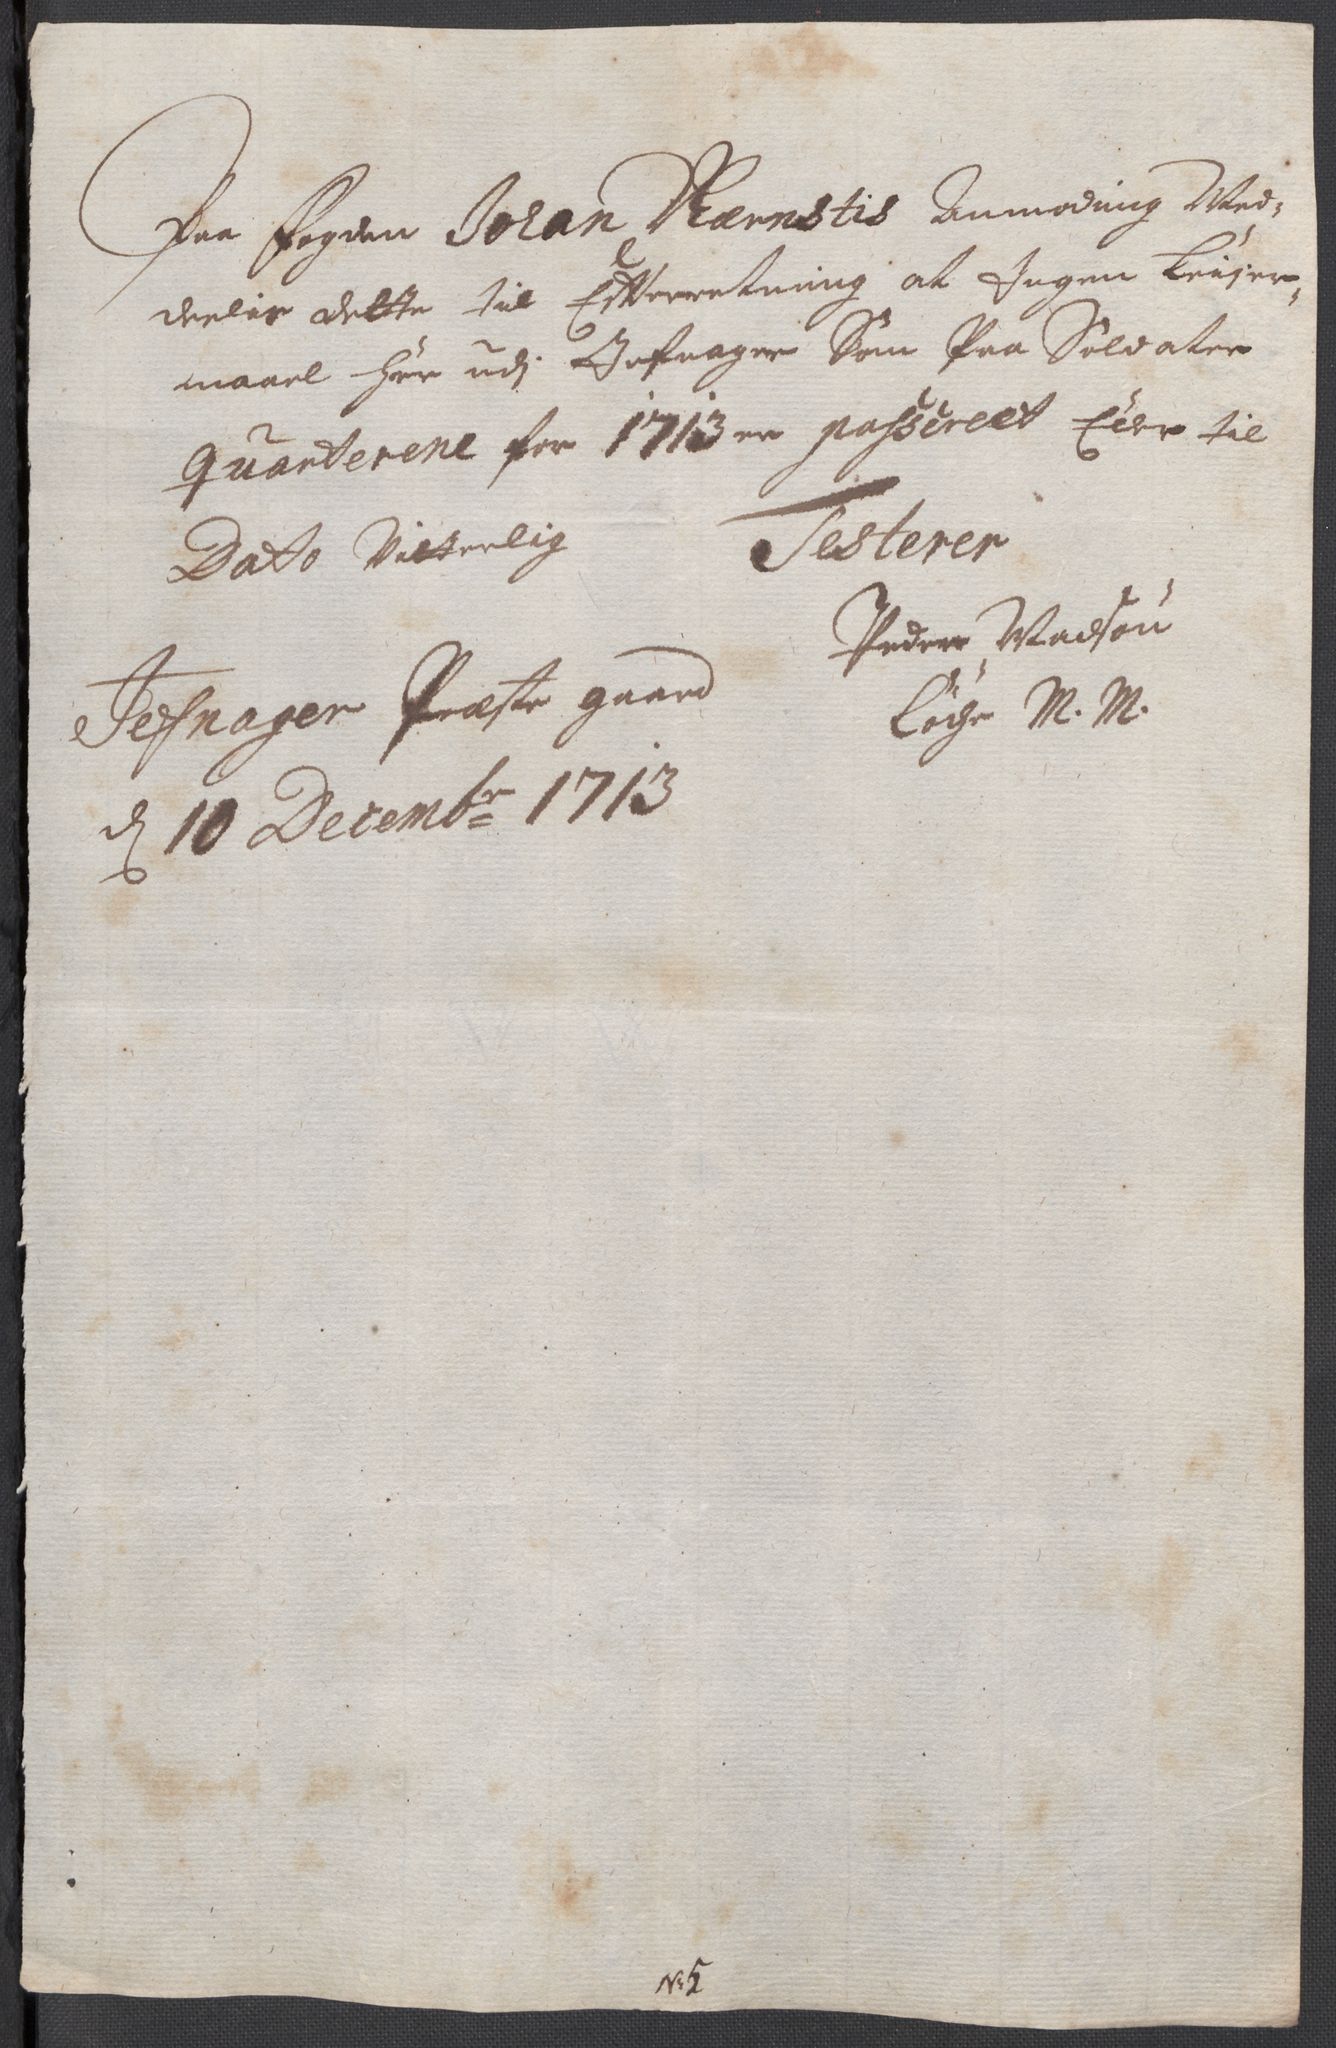 Paa Fogden Johan Kiernstis Anmoding Med-
deelis dette til Efterretning at Ingen Leujer-
maael her udj Jefnager Som Paa Soldater
Quarterene for 1713 er passereet Eder til
Dato Vitterlig Testerer
Peder Madsøn
Løche M. M.
Jefnager Præste gaard
d 10 Decembr 1713
No 5